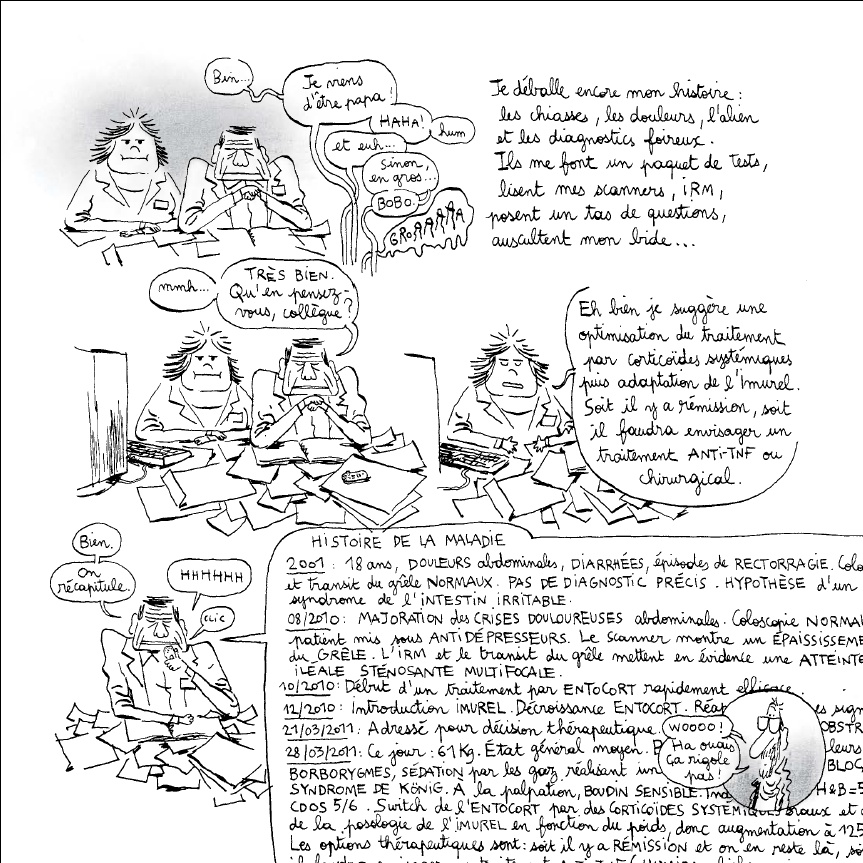 Bin...
Je viens
d'être papa !
HAHA!
hum
et euh...
Sinon,
en gros...
BOBO.
GROAAAAAA
Je déballe encore mon histoire :
les chiasses, les douleurs, l'alien
et les diagnostics foireux.
Ils me font un paquet de tests,
lisent mes scanners, iRM,
posent un tas de questions,
auscultent mon bide...
mmh...
TRÈS BIEN.
Qu'en pensez-
vous, collègue ?
Eh bien je suggère une
optimisation du traitement
par corticoïdes systémiques
puis adaptation de l'imurel.
Soit il y a rémission, soit
il faudra envisager un
traitement ANTi-TNF ou
chirurgical.
Bien.
On
récapitule.
HHHHHH
CLIC
HISTOIRE DE LA MALADIE
2001 : 18 ans, DOULEURS abdominales, DIARRHÉES, épisodes de RECTORRAGIE. Colo
et transit du grêle NORMAUX. PAS DE DIAGNOSTIC PRÉCIS. HYPOTHÈSE d'un
syndrome de l'iNTESTIN iRRITABLE.
08/2010 : MAJORATION des CRISES DOULOUREUSES abdominales. Coloscopie NORMA
patient mis sous ANTIDÉPRESSEURS. Le Scanner montre un ÉPAISSISSEME
du GRÊLE. L'iRM et le transit du grêle mettent en évidence une ATTEINTE
iLÉALE STÉNOSANTE MULTIFOCALE.
10/2010 : Début d'un traitement par ENTOCORT rapidement efficace.
12/2010 : Introduction iMUREL. Décroissance ENTOCORT. Réap es sign
21/03/2011 : Adressé pour décision thérapeutique. OBSTR
28/03/2011 : Ce jour : 61 Kg. État général moyen. leurs
BORBORYGMES, SÉDATION par les gaz réalisant un BLOC
SYNDROME DE KÖNIG. A la palpation, BOUDIN SENSIBLE. H&B=5
CDOS 5/6. Switch de l'ENTOCORT par des CORTICOÏDES SYSTÉMIQUES oraux et
de la posologie de l'iMUREL en fonction du poids, donc augmentation à 125
Les options thérapeutiques sont : soit il y a RÉMISSION et on en reste là, so
WOOOO !
Ha ouais
Ça rigole
pas !